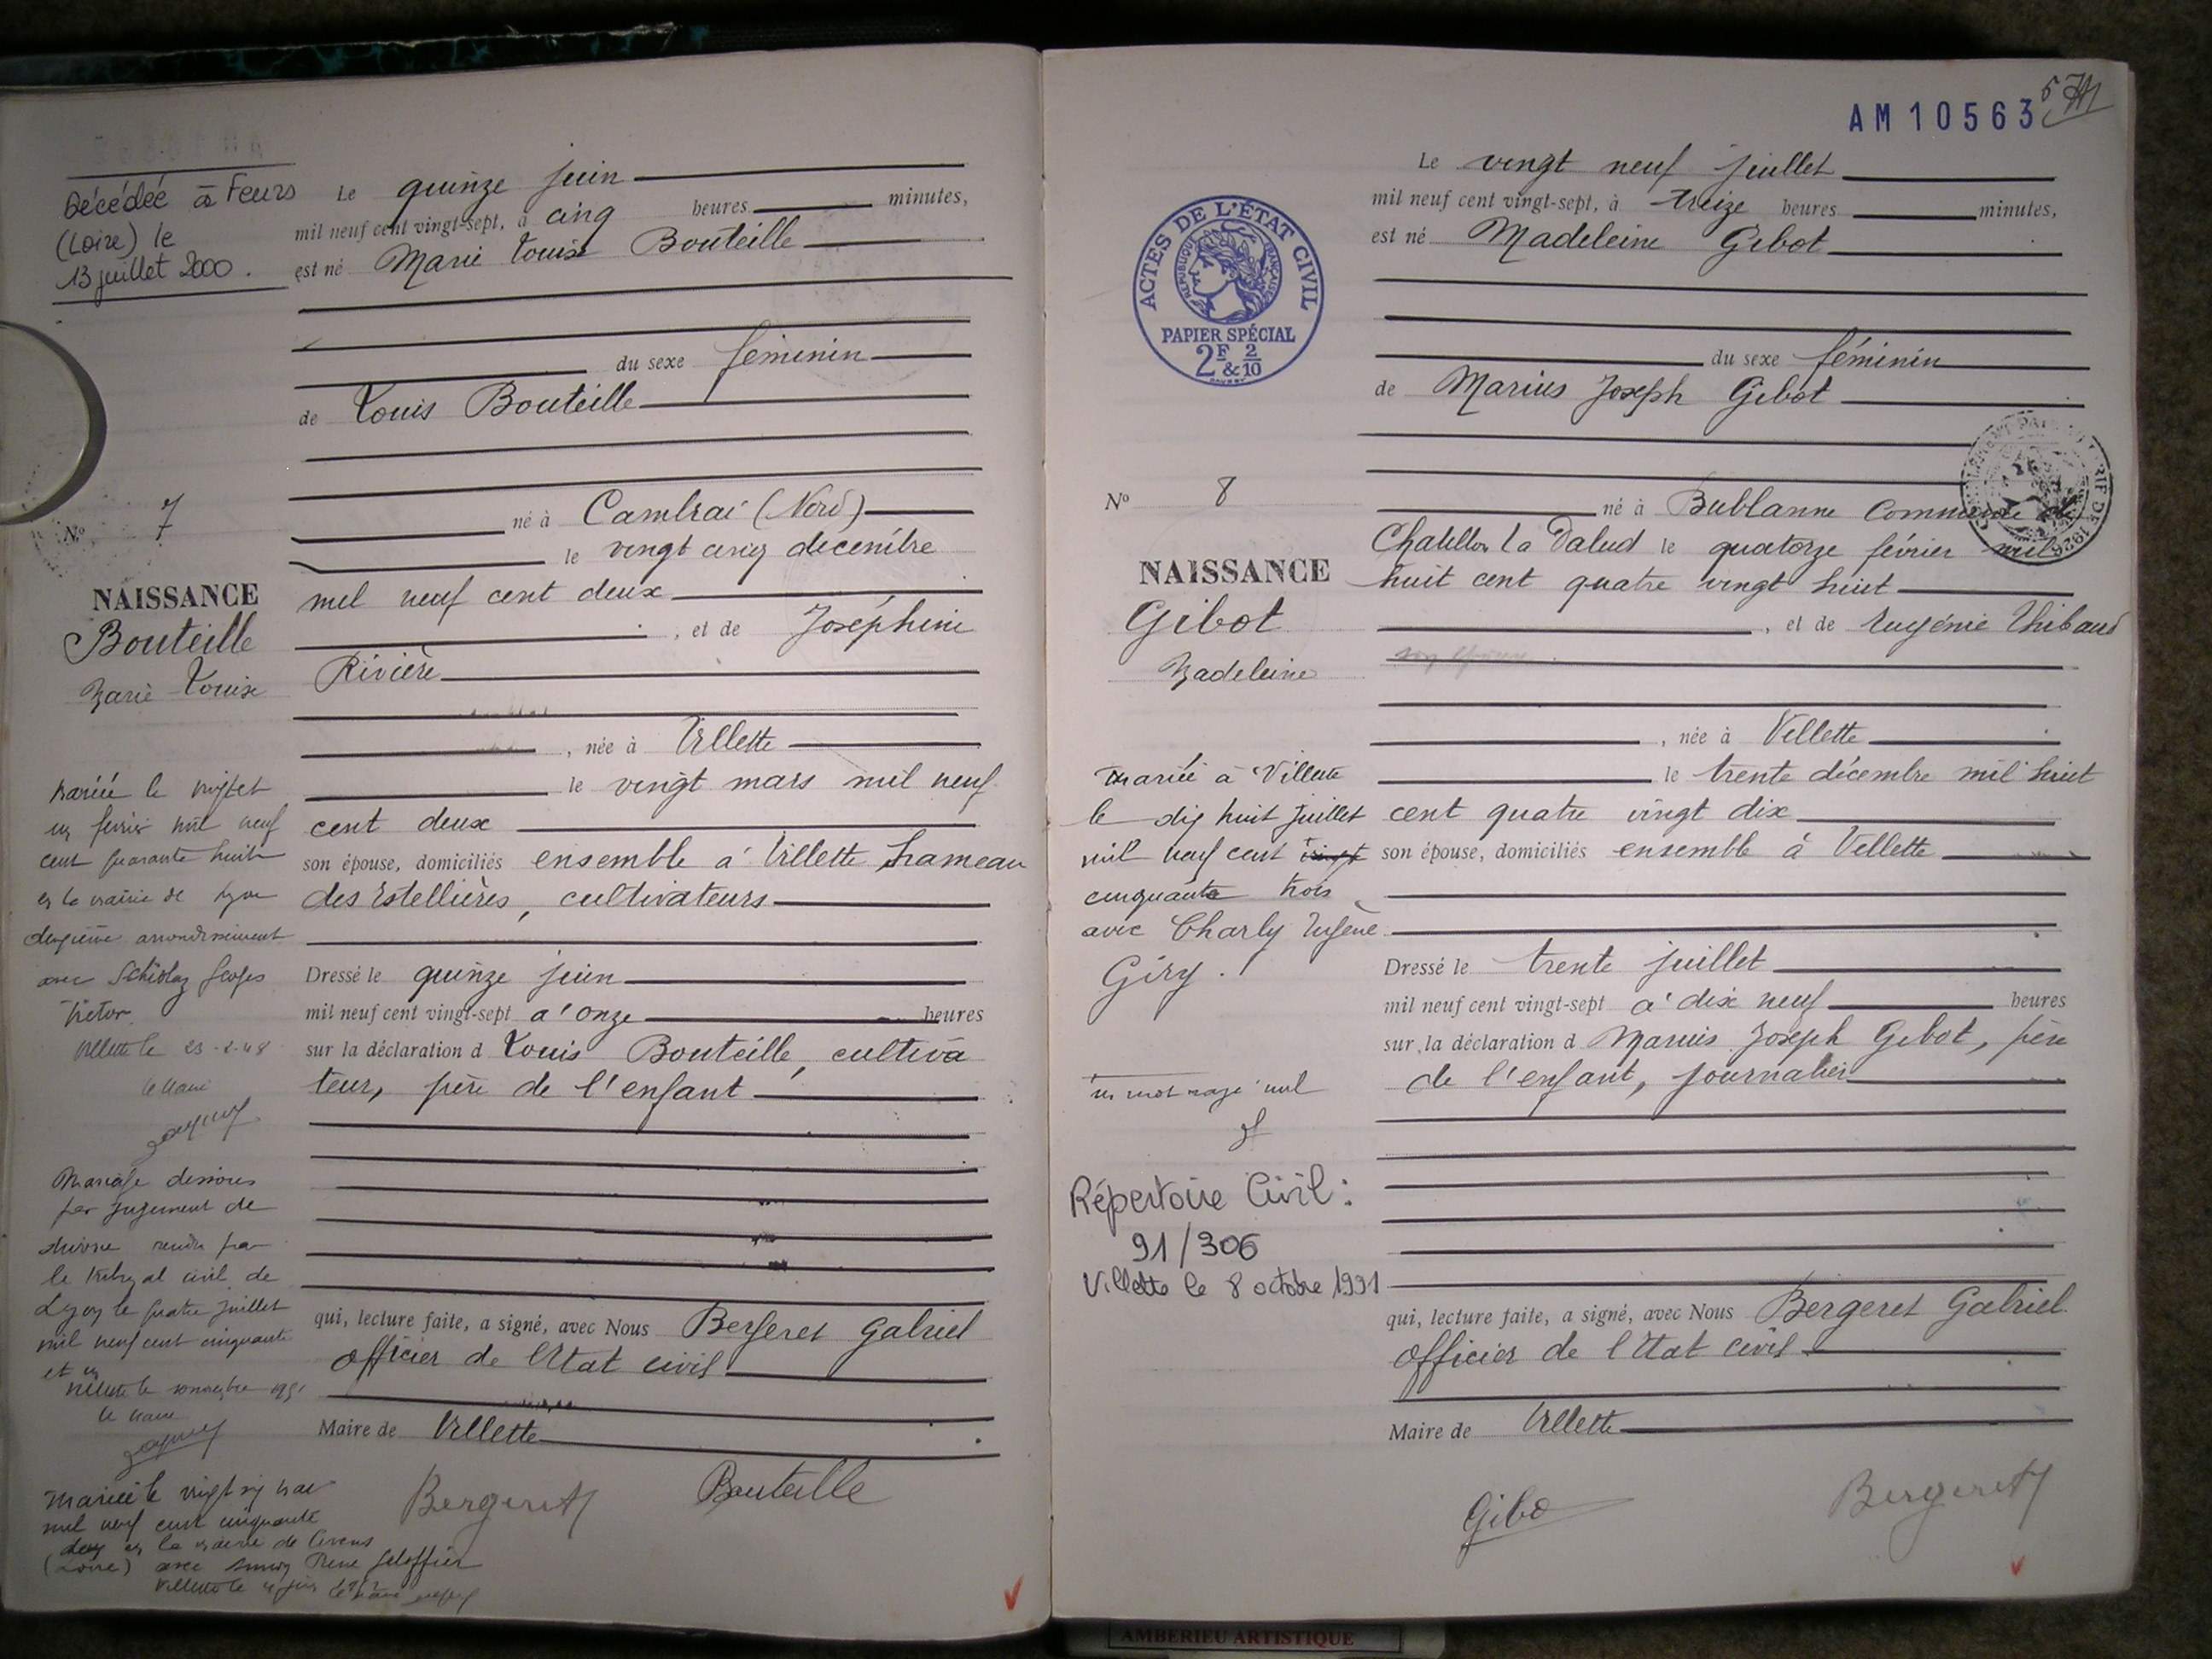 Décédée à Feurs
(Loire) le
13 juillet 2000.
Le quinze juin
mil neuf cent vingt-sept, à cinq heures minutes,
est né Marie Louise Bouteille
du sexe féminin
de Louis Bouteille
né à Cambrai (Nord)
le vingt cinq decembre
mil neuf cent deux
, et de Joséphine
Rivière
, née à Villette
le vingt mars mil neuf
cent deux
son épouse, domiciliés ensemble à Villette hameau
des Estellières, cultivateurs
Dressé le quinze juin
mil neuf cent vingt-sept à onze heures
sur la déclaration d Louis Bouteille, cultiva
teur, père de l'enfant
qui, lecture faite, a signé, avec Nous Bergeret Gabriel
officier de l'Etat civil
Maire de Villette
Bergeret Bouteille
No 7
NAISSANCE
Bouteille
Marie Louise
Mariée le vingt et
un février mil neuf
cent quarante huit
en la mairie de Lyon
deuxième arrondissement
avec Georges
Victor
Villette le 23-2-48
le Maire
Mariage dissous
par jugement de
divorce rendu par
le tribunal civil de
Lyon le quatre juillet
mil neuf cent cinquante
et un
Villette le novembre 1951
le Maire
Mariée le vingt mai
mil neuf cent cinquante
deux en la mairie de Civens
(Loire) avec René
Villette le juin le Maire
AM 10563
Le vingt neuf juillet
mil neuf cent vingt-sept, à treize heures minutes,
est né Madeleine Gibot
du sexe féminin
de Marius Joseph Gibot
né à Bublanne Commune de
Chatillon La Palud le quatorze février mil
huit cent quatre vingt huit
, et de Eugénie Thibaud
son épouse
, née à Villette
le trente décembre mil huit
cent quatre vingt dix
son épouse, domiciliés ensemble à Villette
Dressé le trente juillet
mil neuf cent vingt-sept à dix neuf heures
sur la déclaration d Marius Joseph Gibot, père
de l'enfant, journalier
qui, lecture faite, a signé, avec Nous Bergeret Gabriel
officier de l'Etat civil
Maire de Villette
Gibo Bergeret
ACTES DE L'ÉTAT CIVIL
RÉPUBLIQUE FRANÇAISE
PAPIER SPÉCIAL
2F & 2/10
No 8
NAISSANCE
Gibot
Madeleine
Mariée à Villette
le dix huit juillet
mil neuf cent vingt
cinquante trois
avec Charly Eugène
Giry.
un mot rayé nul
Répertoire Civil:
91/306
Villette le 8 octobre 1991
AMBERIEU ARTISTIQUE